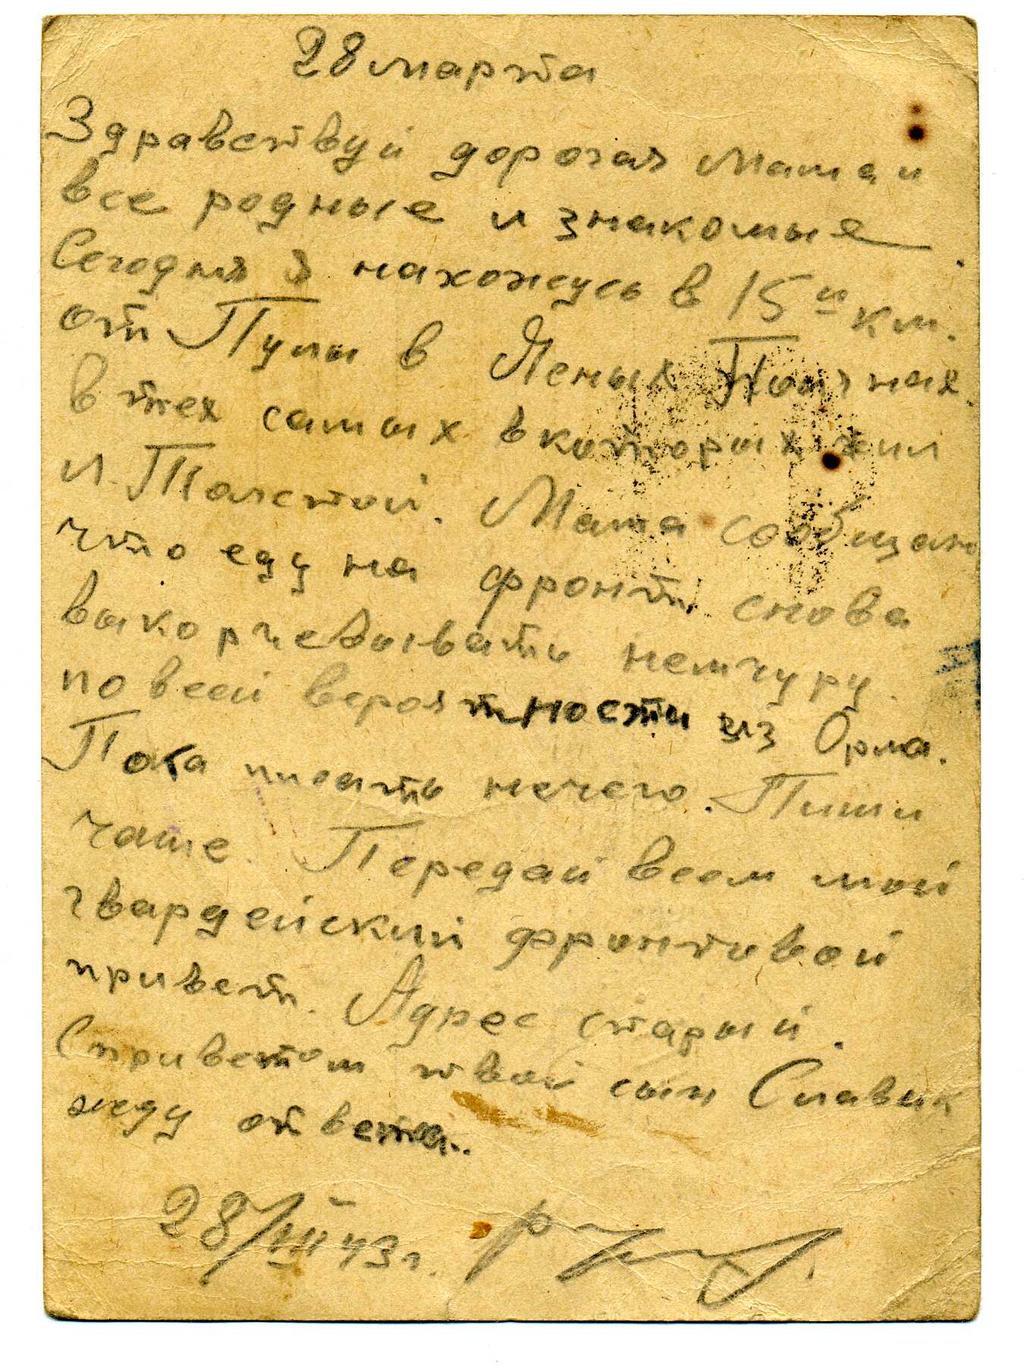 28 марта
Здравствуй дорогая Мама и
все родные и знакомые
Сегодня я нахожусь в 15и км.
от Тулы в Ясных Полянах.
в тех самых в которых жил
Л. Толстой. Мама сообщаю
что еду на фронт снова
выкорчевывать немчуру.
по всей вероятности из Орла.
Пока писать нечего. Пиши
чаще. Передай всем мой
гвардейский фронтовой
привет. Адрес старый.
С приветом твой сын Славик
жду ответа..
28/III 43 г.